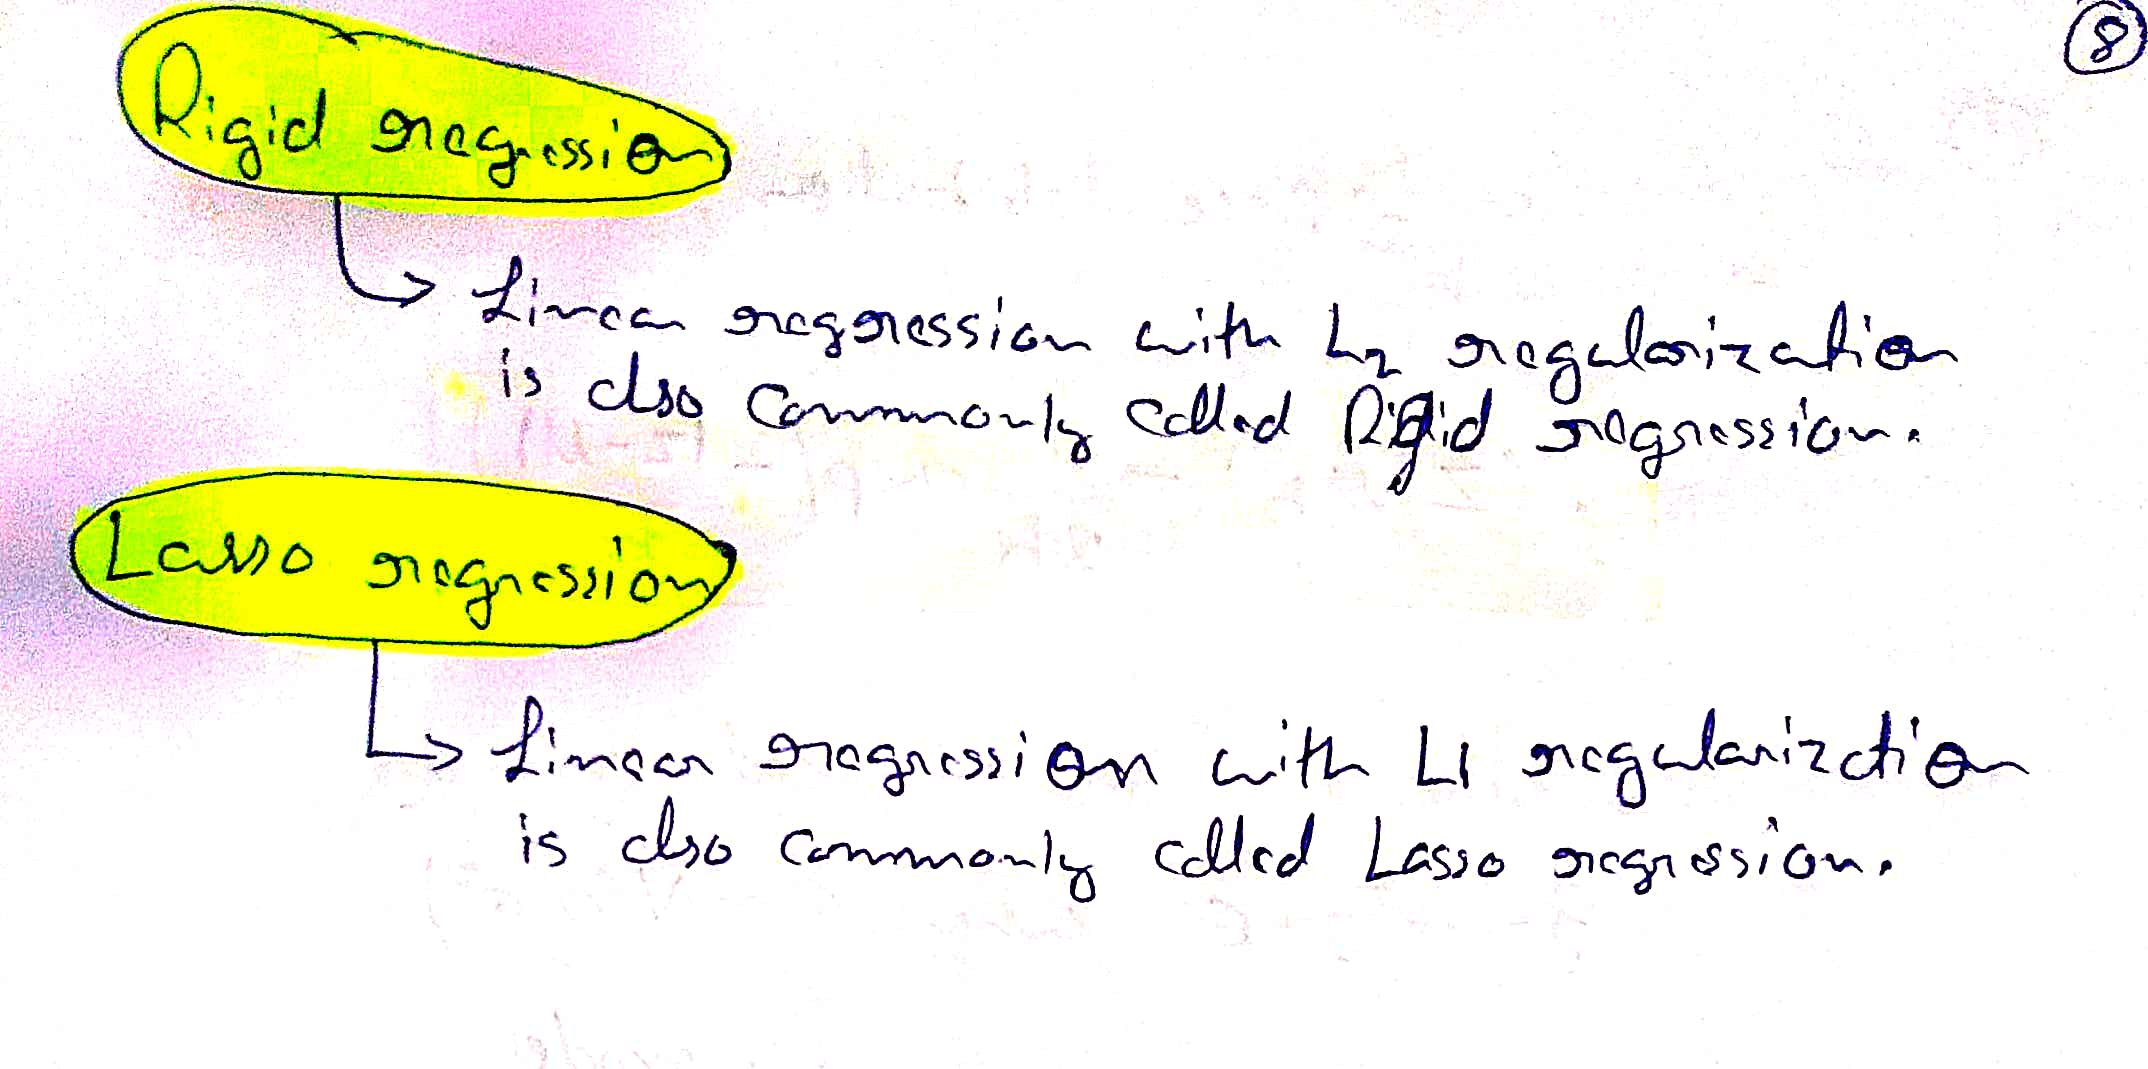 8
Rigid regression
Linear regression with L2 regularization
is also commonly called Rigid regression.
Lasso regression
Linear regression with L1 regularization
is also commonly called Lasso regression.